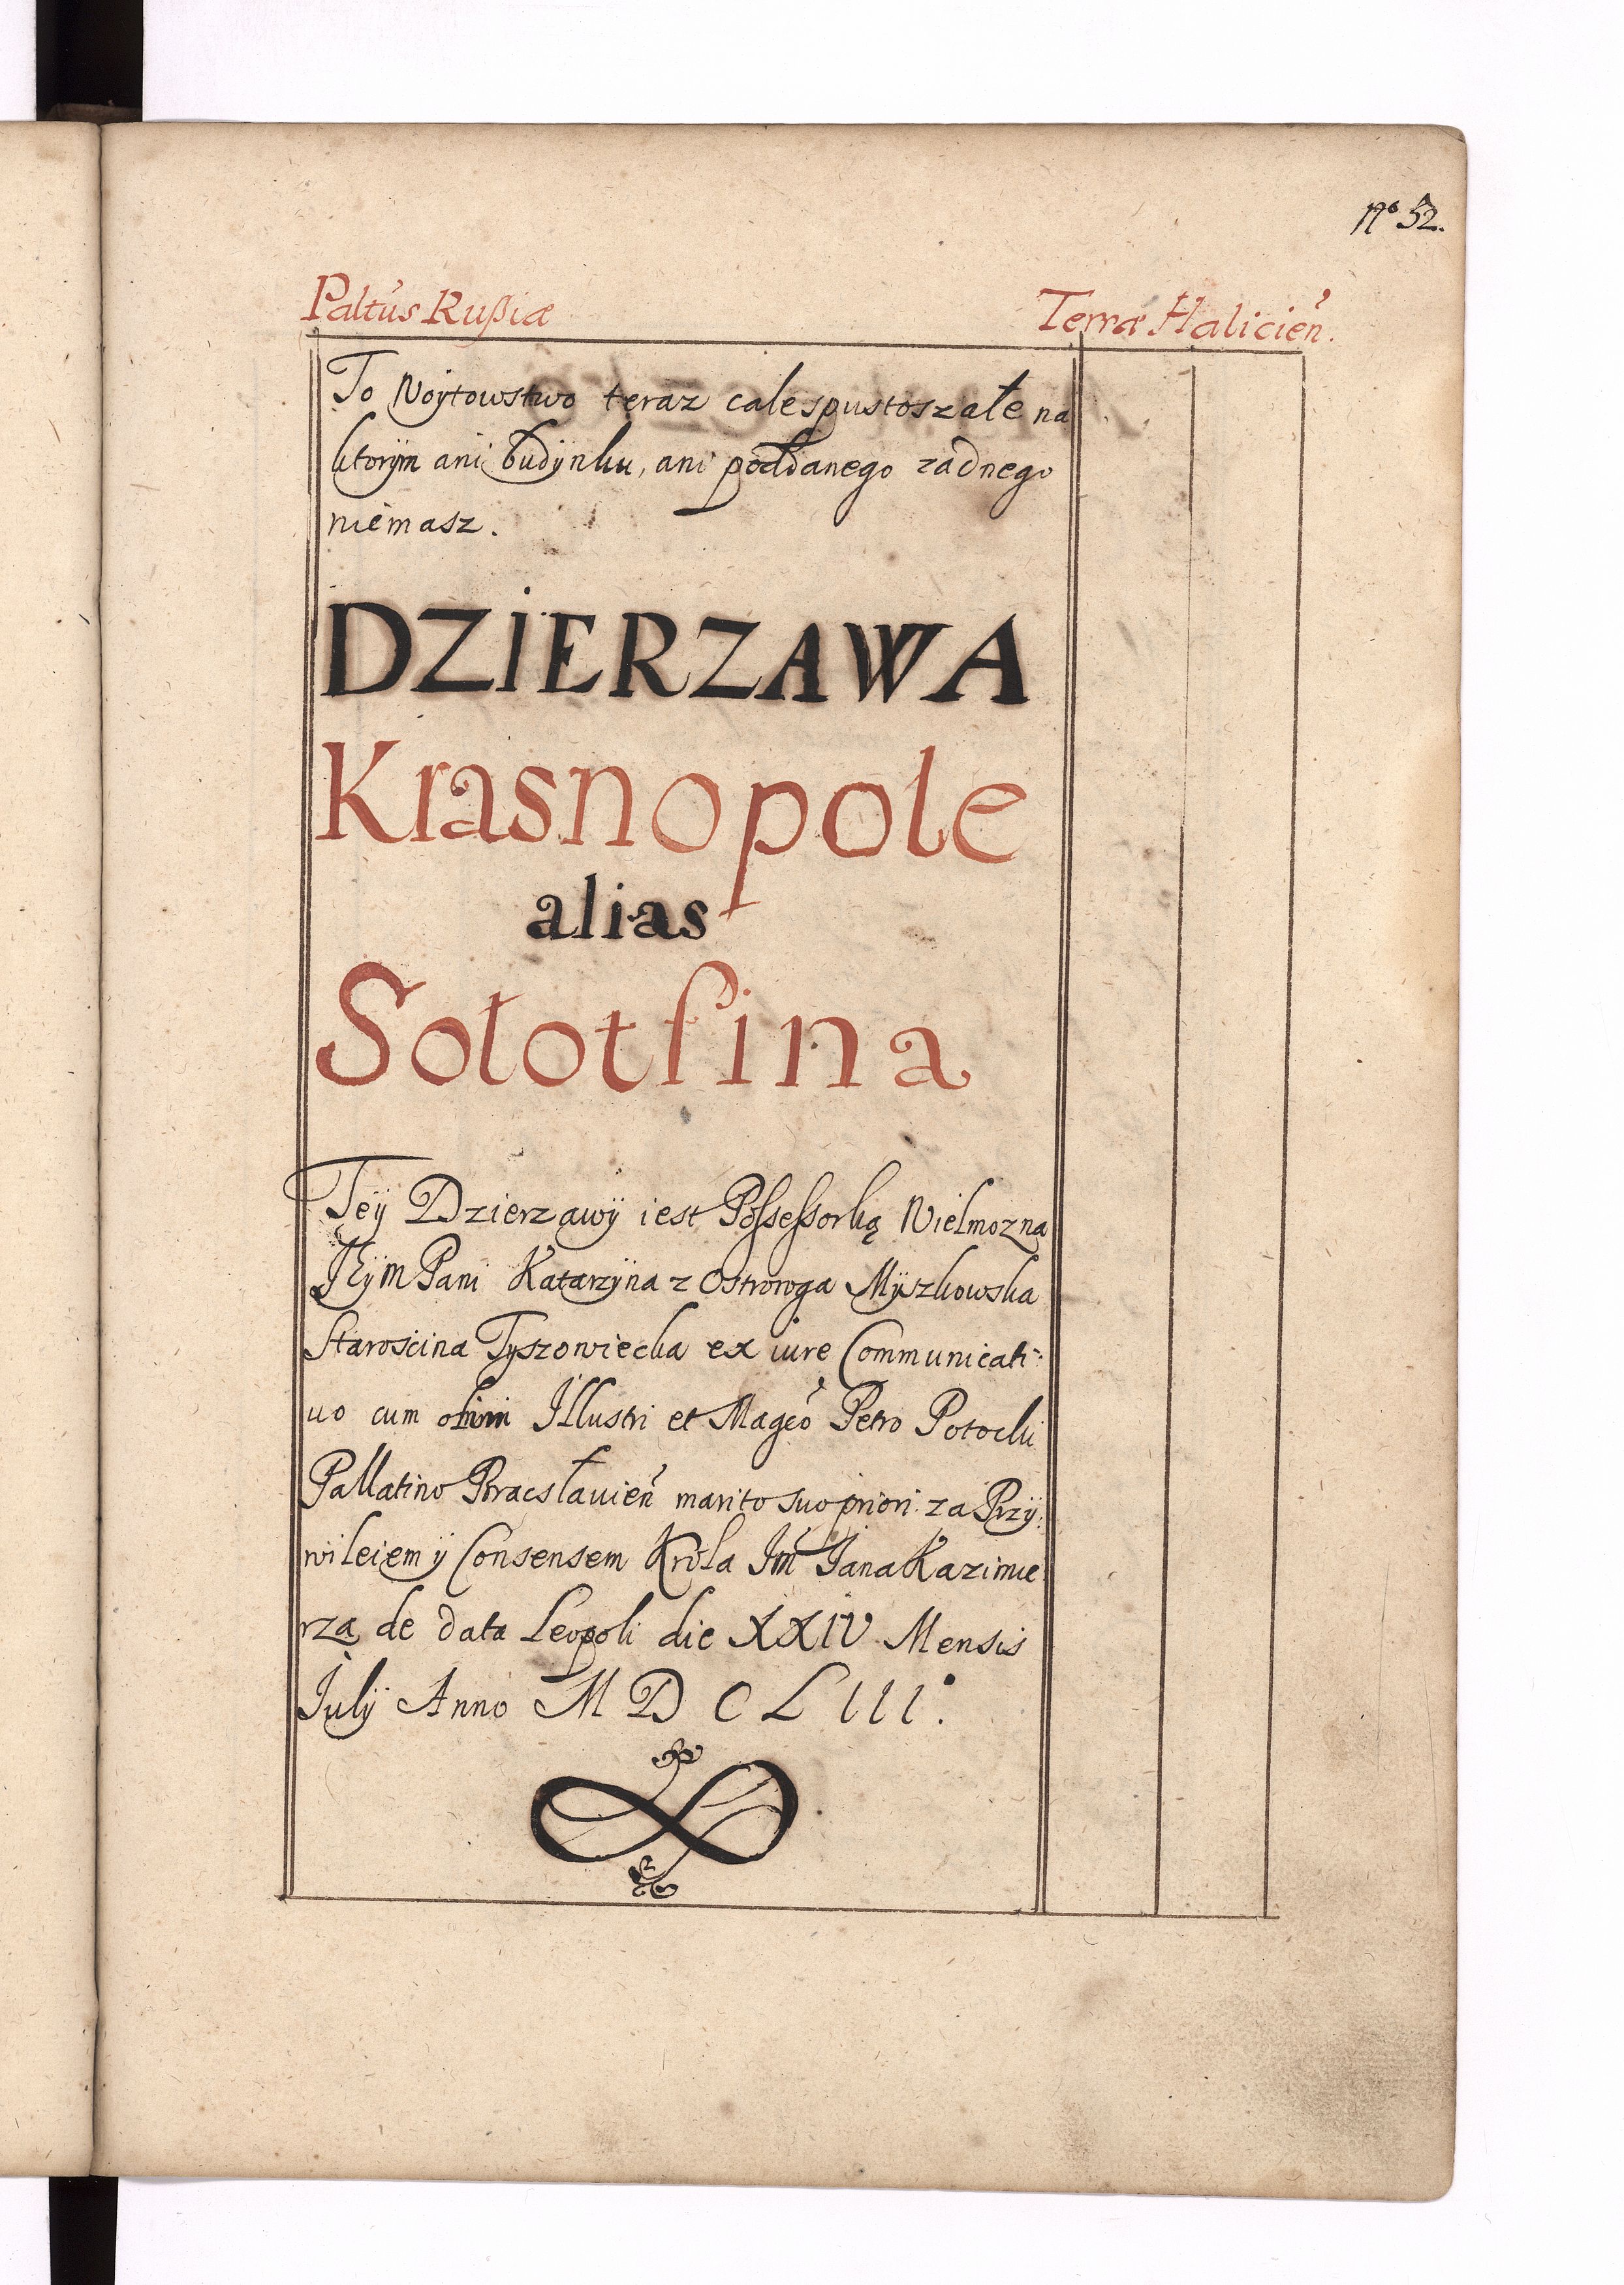 Nº 52.
Paltûs Rußiæ Terræ Halicień.
To Woytowstwo teraz cale spustoszałe na
ktorÿm ani budÿnku, ani poddanego zadnego
niemasz.
DZIERZAWA
Krasnopole
alias
Sołotſina
Teÿ Dzierzawÿ iest Poſseſsorką Wielmozna
JEÿm Pani Katarzÿna z Ostroroga Mÿszkowska
Starośćina Tyszowiecka ex iure Communicati:
uo cum olim Jllustri et Magcó Petro Potocki
Pallatino Bracsłauień marito suo priori za Przÿ:
wileiem ÿ Consensem Króla Jm̃ Jana Kazimie
rza de data Leopoli die XXIV Mensis
Julÿ Anno M D C L III°.